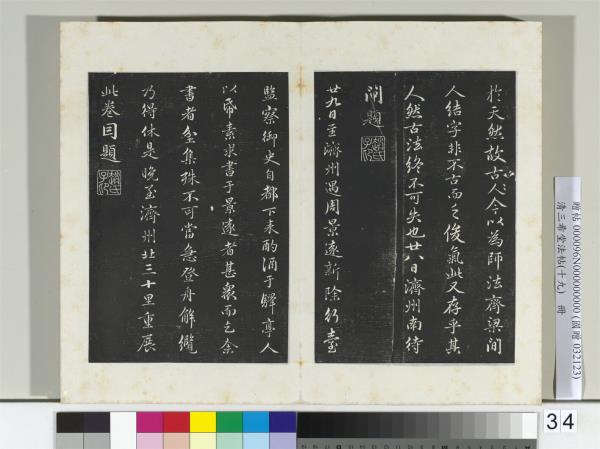 於天然故古人今以為師法齊梁間
人結字非不古而乏俊氣此又存乎其
人然古法終不可失也廿八日濟州南待
閘題
趙氏子昂
廿九日至濟州遇周景遠新除行臺
監察御史自都下来酌酒于驛亭人
以帋素求書于景遠者甚衆而乞余
書者坌集殊不可當急登舟解纜
乃得休是晚至濟州北三十里重展
此卷因題
趙氏子昂
贈帖 000096N000000000 (國贈 032123)
清三希堂法帖(十九) 冊
34